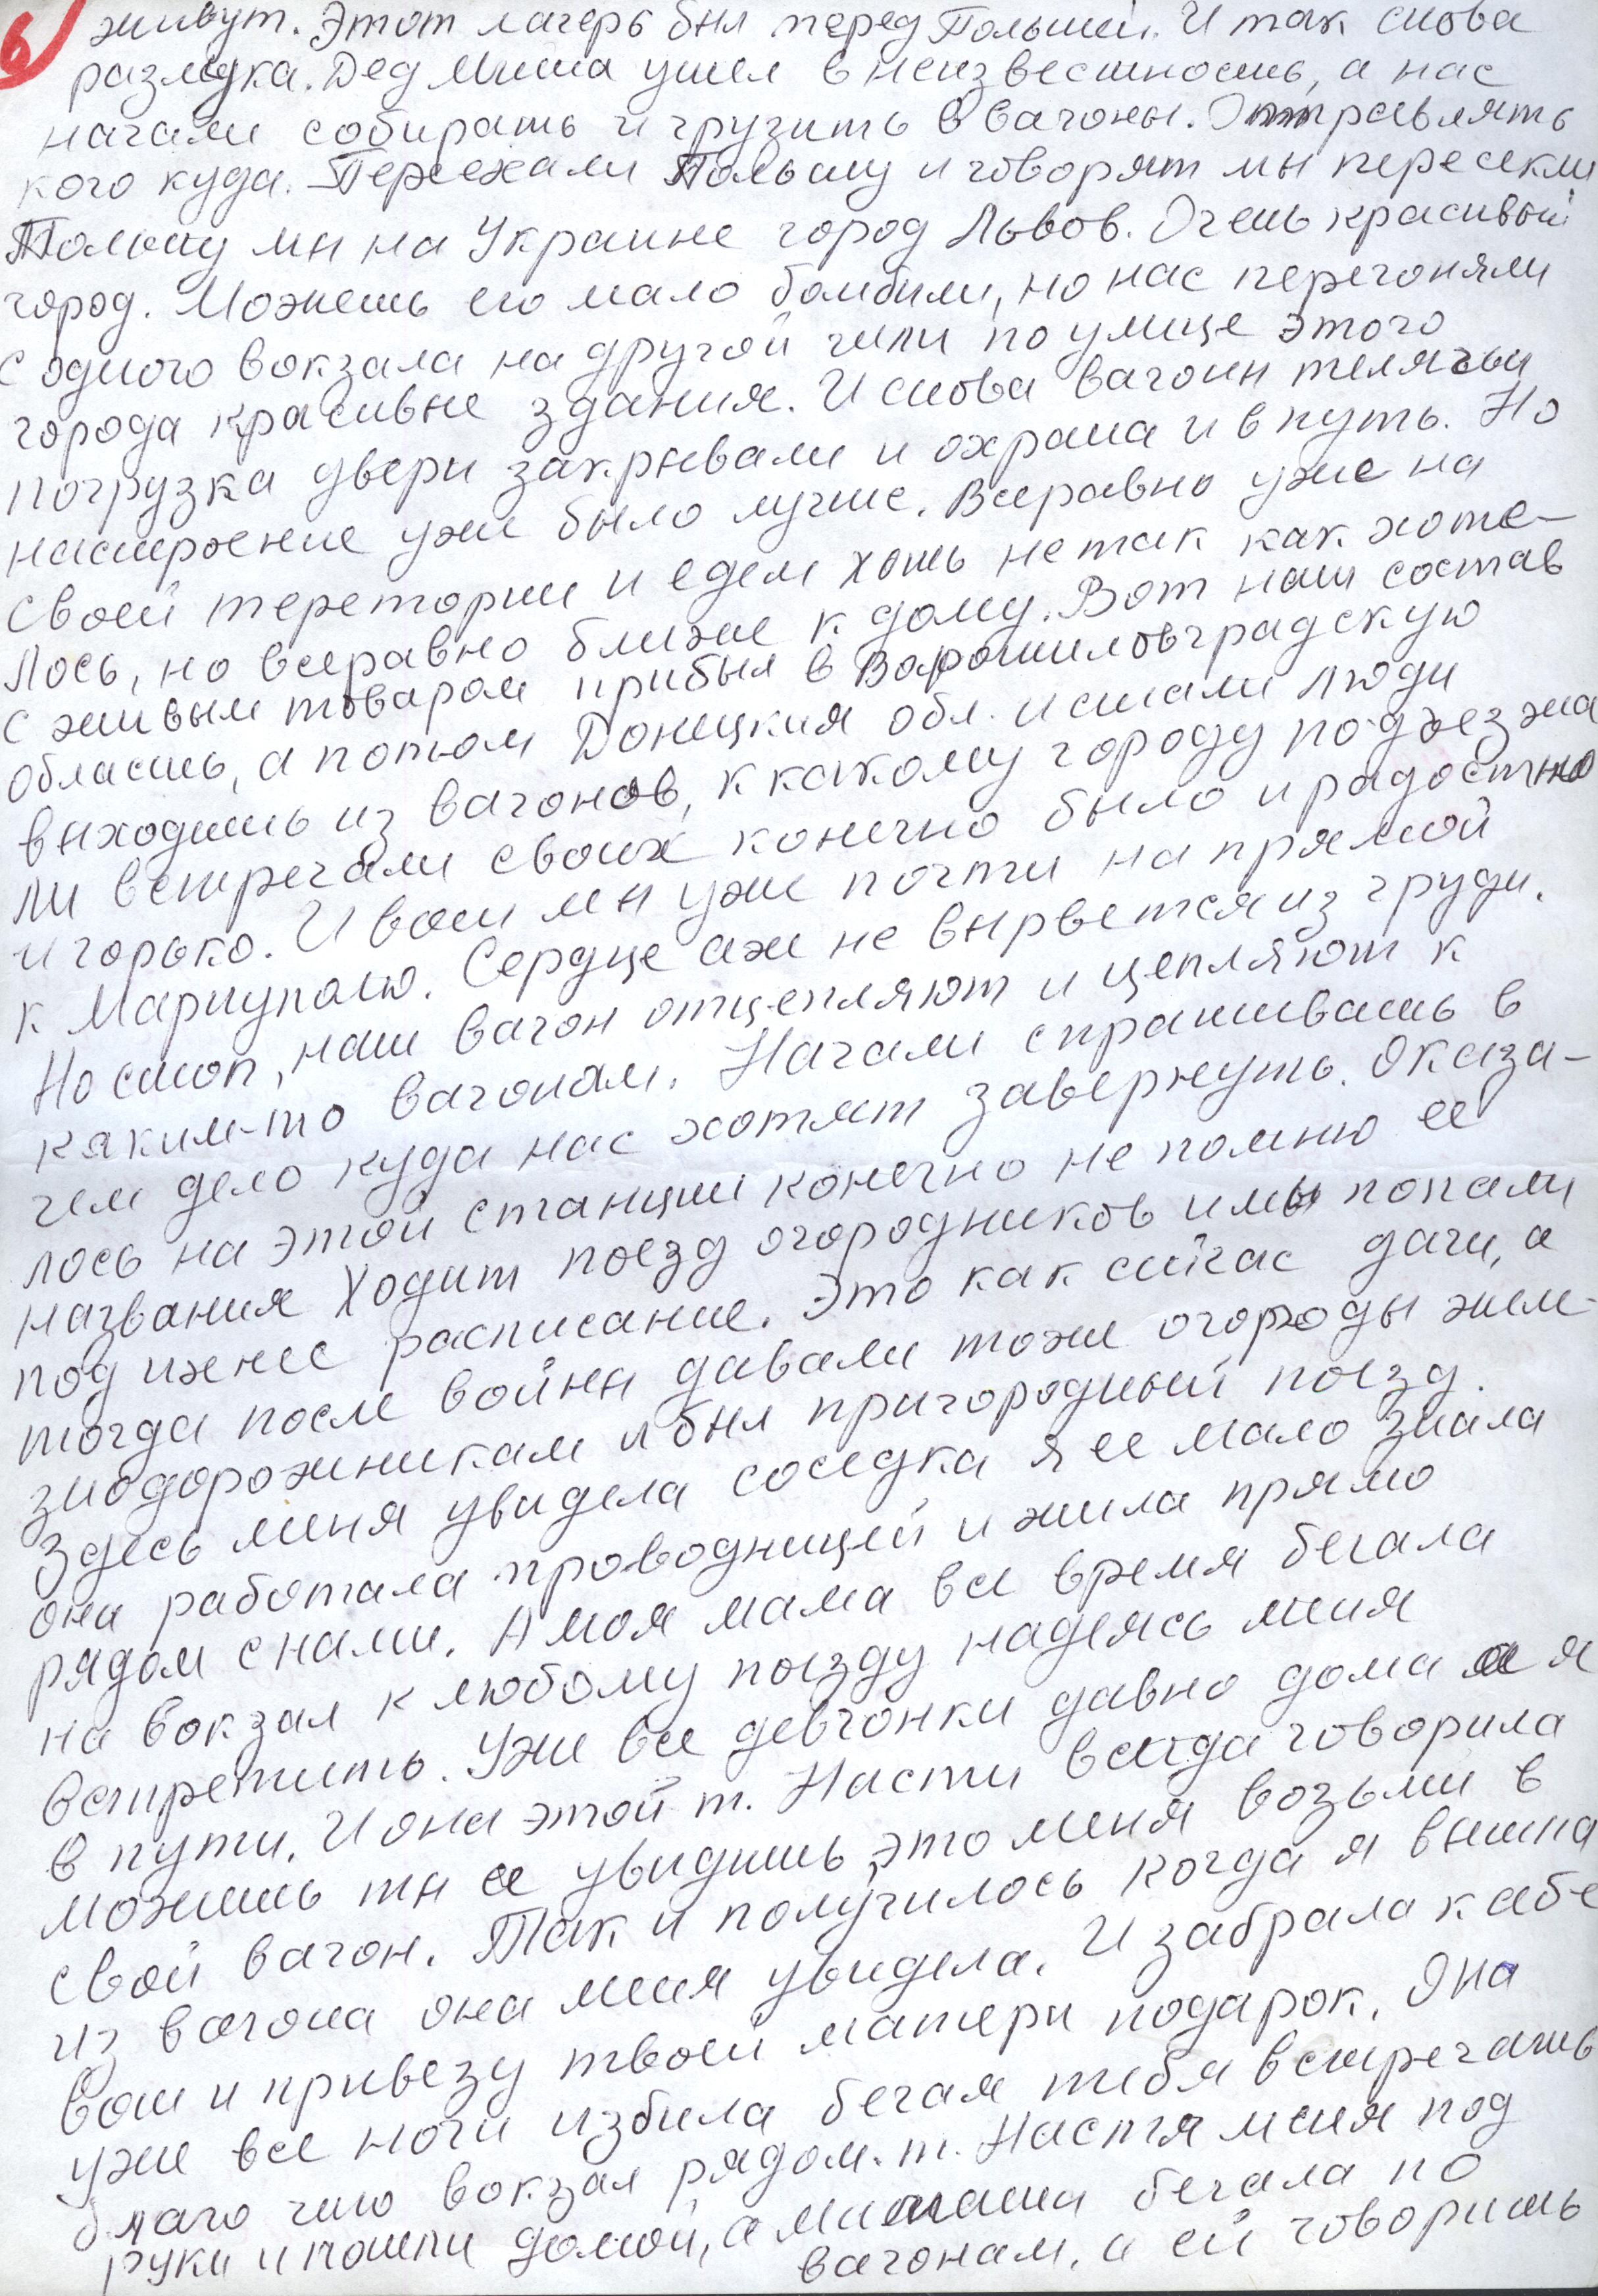 6
живут. Этот лагерь был перед Польшей. И так снова
разлука. Дед Миша ушел в неизвестность, а нас
начали собирать и грузить в вагоны. Отправлять
кого куда. Переехали Польшу и говорят мы пересекли
Польшу мы на Украине город Львов. Очень красивый
город. Можешь его мало бомбили, но нас перегоняли
с одного вокзала на другой чили по улице этого
города красивые здания. И снова вагоны телячьи
погрузка двери закрывали и охрана и в путь. Но
настроение уже было лучше. Всеравно уже на
своей теретории и едем хоть не так как хоте-
лось, но всеравно ближе к дому. Вот наш состав
с живым товаром прибыл в Ворошиловградскую
область, а потом Донецкия обл. и стали люди
выходить из вагонов, к какому городу подъезжа
ли встречали своих конечно было и радостно
и горько. И вот мы уже почти на прямой
к Мариуполю. Сердце аж не вырвется из груди.
Но стоп, наш вагон отцепляют и цепляют к
каким-то вагонам. Начали спрашивать в
чем дело куда нас хотят завернуть. Оказа-
лось на этой станции конечно не помню ее
названия Ходит поезд огородников и мы попали
под ихнее расписание. Это как сейчас дачи, а
тогда после войны давали тоже огороды желе-
знодорожникам и был пригородный поезд.
Здесь меня увидела соседка я ее мало знала
она работала проводницей и жила прямо
рядом с нами. А моя мама все время бегала
на вокзал к любому поезду надеясь меня
встретить. Уже все девчонки давно дома а я
в пути. И она этой т. Насти всегда говорила
можешь ты ее увидишь это меня возьми в
свой вагон. Так и получилось когда я вышла
из вагона она меня увидела. И забрала к себе
вот и привезу твоей матери подарок. Она
уже все ноги избила бегая тебя встречать
благо что вокзал рядом. т. Настя меня под
руки и пошли домой, а мамаша бегала по
вагонам, а ей говорить